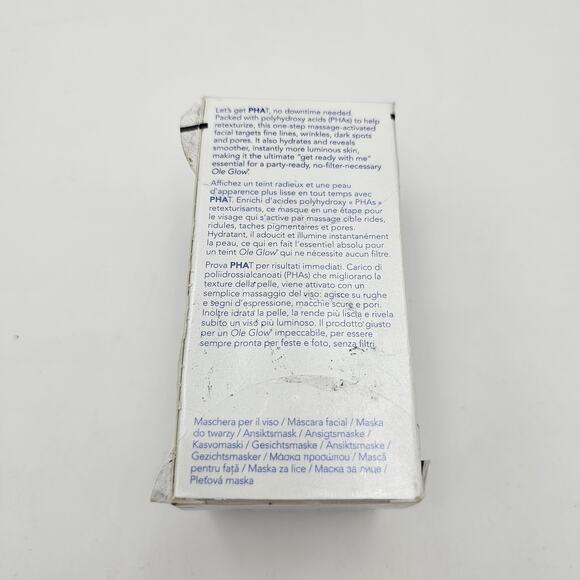 Let's get PHAT, no downtime needed.
Packed with polyhydroxy acids (PHAs) to help
retexturize, this one-step massage-activated
facial targets fine lines, wrinkles, dark spots
and pores. It also hydrates and reveals
smoother, instantly more luminous skin,
making it the ultimate "get ready with me"
essential for a party-ready, no-filter-necessary
Ole Glow®.
Affichez un teint radieux et une peau
d'apparence plus lisse en tout temps avec
PHAT. Enrichi d'acides polyhydroxy « PHAs »
retexturisants, ce masque en une étape pour
le visage qui s'active par massage cible rides,
ridules, taches pigmentaires et pores.
Hydratant, il adoucit et illumine instantanément
la peau, ce qui en fait l'essentiel absolu pour
un teint Ole Glow® qui ne nécessite aucun filtre.
Prova PHAT per risultati immediati. Carico di
poliidrossialcanoati (PHAs) che migliorano la
texture della pelle, viene attivato con un
semplice massaggio del viso: agisce su rughe
e segni d'espressione, macchie scure e pori.
Inoltre idrata la pelle, la rende più liscia e rivela
subito un viso più luminoso. Il prodotto giusto
per un Ole Glow® impeccabile, per essere
sempre pronta per feste e foto, senza filtri.
Maschera per il viso / Máscara facial / Maska
do twarzy / Ansiktsmask / Ansigtsmaske /
Kasvomaski / Gesichtsmaske / Ansiktsmaske /
Gezichtsmasker / Μάσκα προσώπου / Mască
pentru față / Maska za lice / Маска за лице /
Pleťová maska